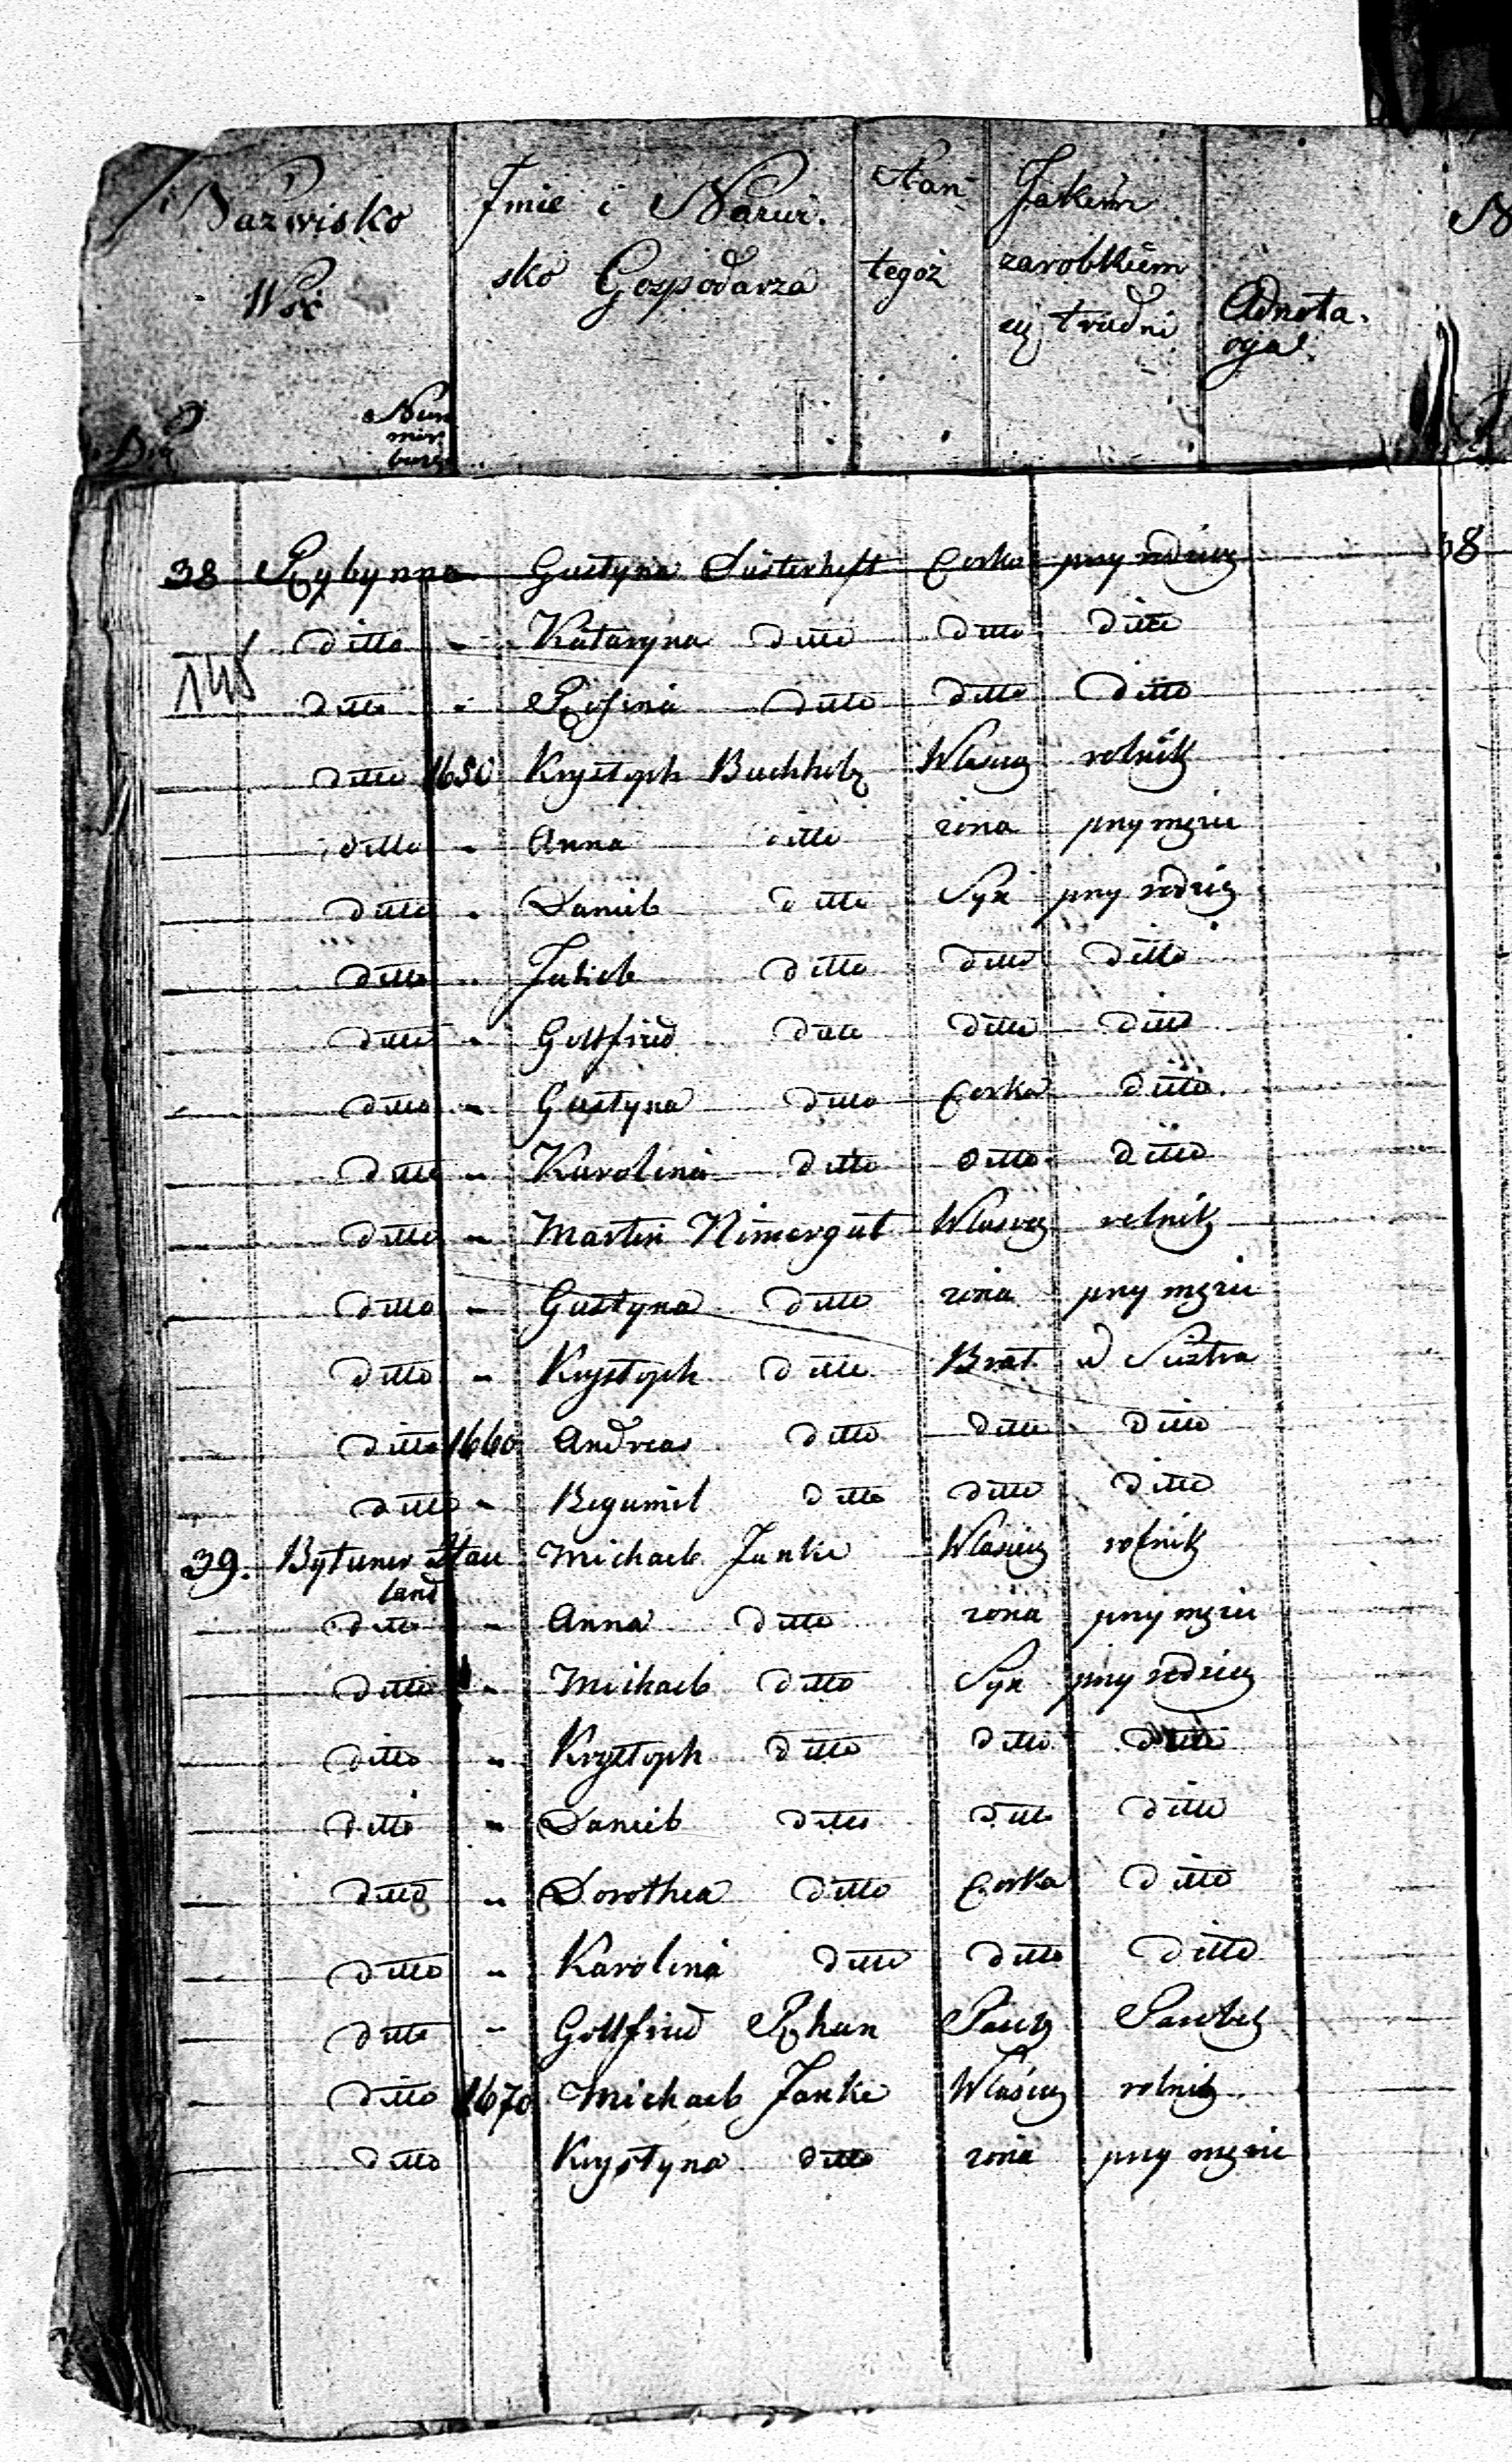 Nazwisko Wsi
Num mer
Imie i Nazwi. sko Gospodarza
Stan tegoż
Jakiem zarobkiem się trudni
Adnota. cya
38 Rybynno Gustyna Susterheft Corka przy rodzicz 38
ditto - Kataryna ditto ditto ditto
145
ditto - Rosina ditto ditto ditto
ditto 1650 Krystoph Buchholz Własciz rolnik
ditto - Anna ditto żona przy mężu
ditto - Daniel ditto Syn przy rodzicz
ditto - Jakob ditto ditto ditto
ditto - Gottfried ditto ditto ditto
ditto - Gustyna ditto Corka ditto
ditto - Karolina ditto ditto ditto
ditto - Martin Nimergut Własciz rolnik
ditto - Gustyna ditto żona przy mężu
ditto - Krystoph ditto Brat
ditto 1660 Andreas ditto ditto ditto
ditto - Bogumil ditto ditto ditto
39. Michael Janke Własciz rolnik
land
ditto - Anna ditto żona przy mężu
ditto - Michael ditto Syn przy rodzicz
ditto - Krystoph ditto ditto ditto
ditto - Daniel ditto ditto ditto
ditto - Dorothea ditto Corka ditto
ditto - Karolina ditto ditto ditto
ditto - Gottfried
ditto 1670 Michael Janke Właściz rolnik
ditto Krystyna ditto żona przy mężu